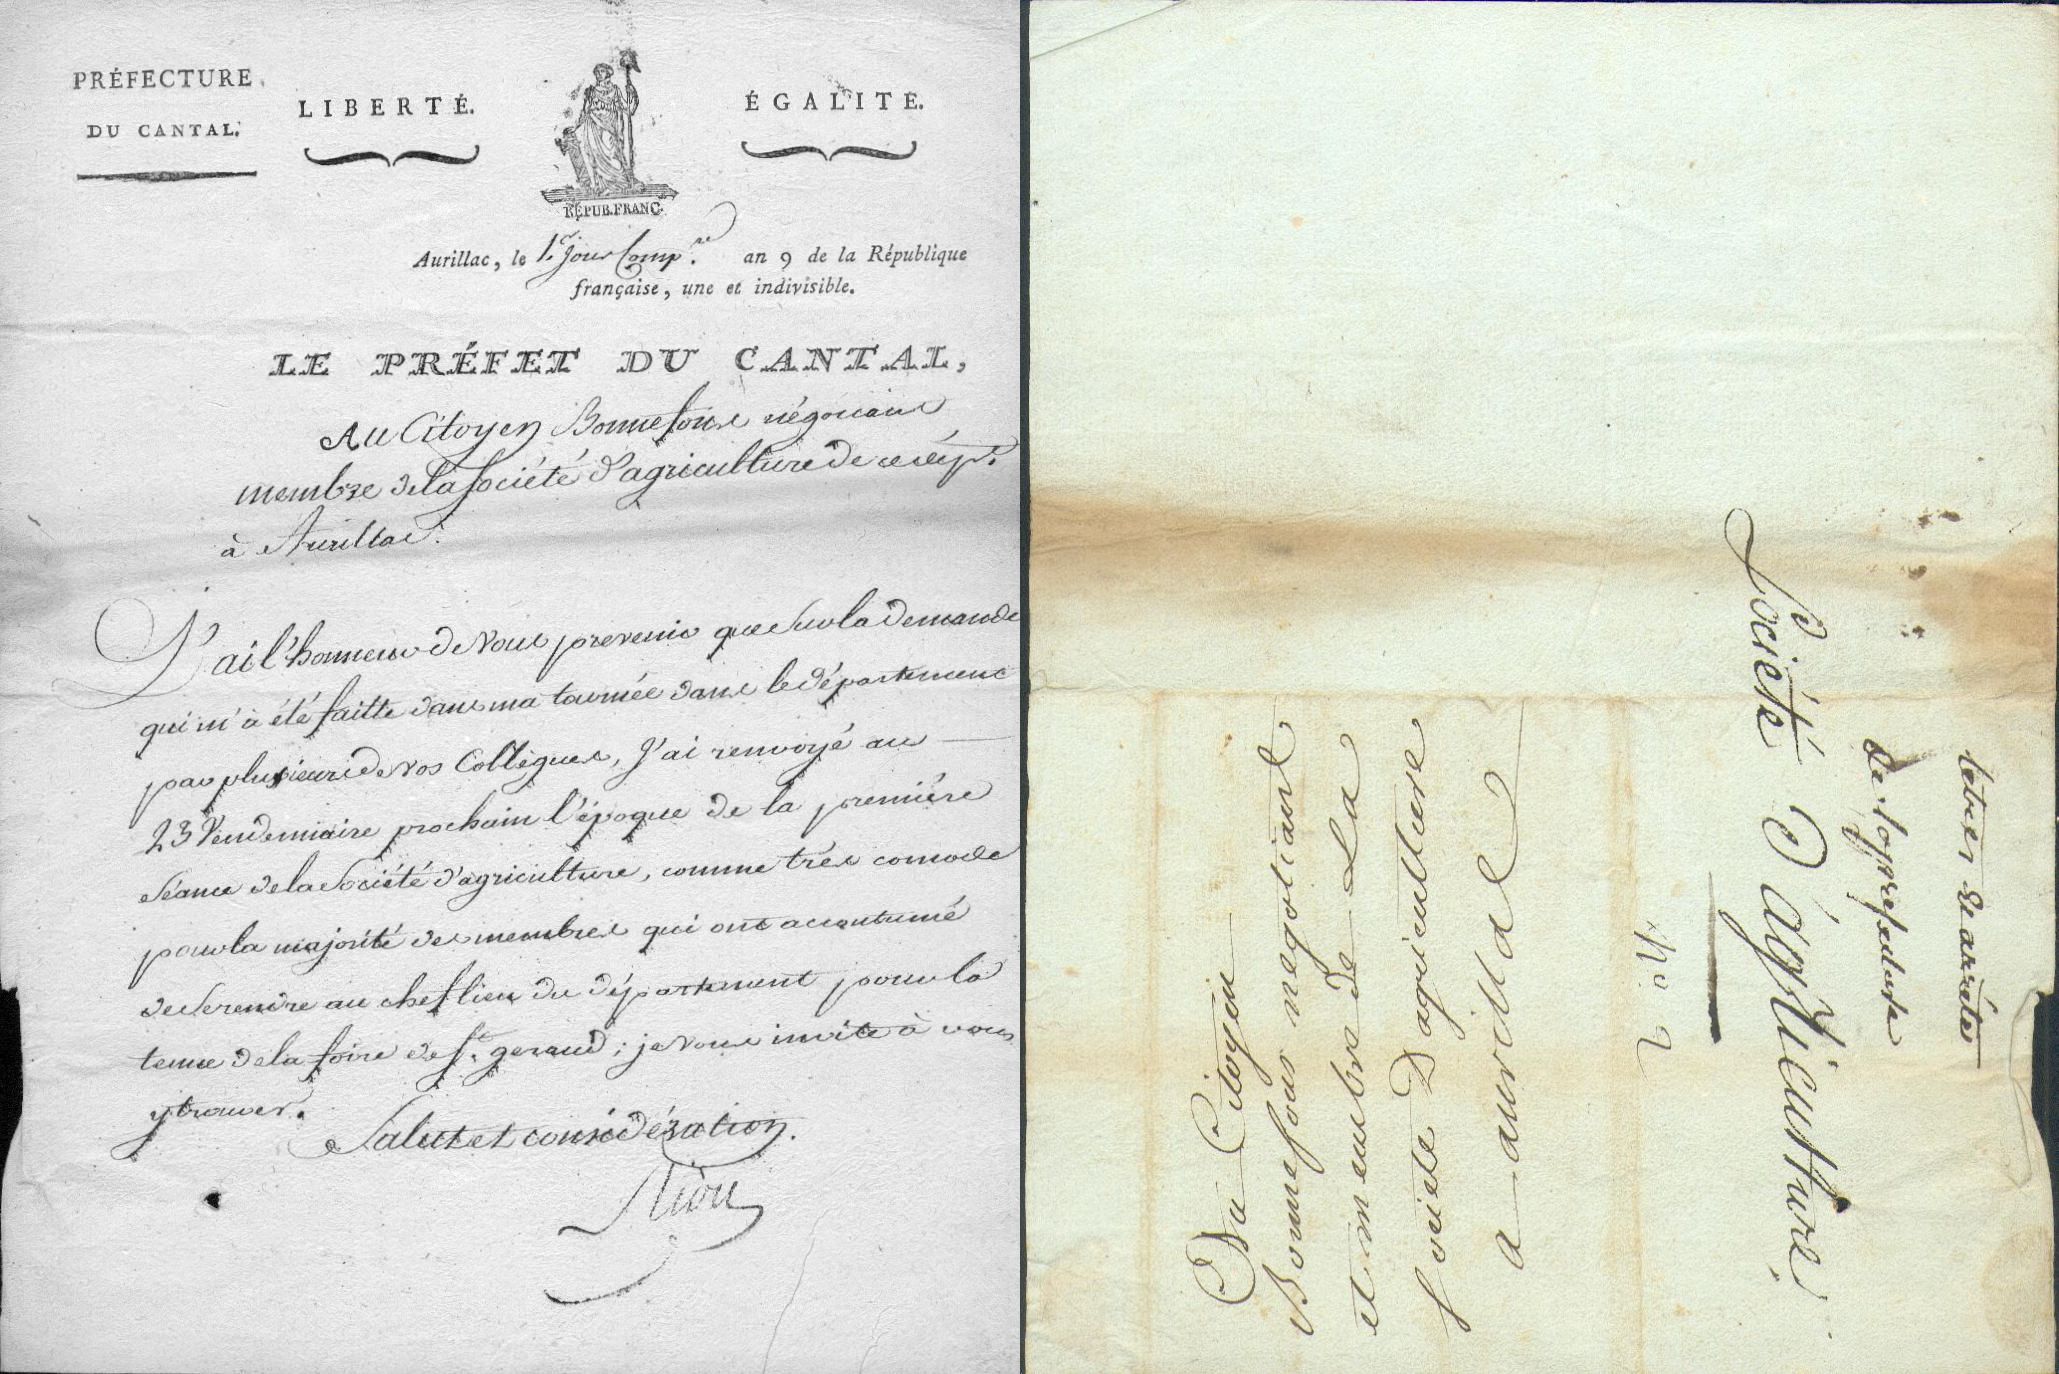 PRÉFECTURE
DU CANTAL.
LIBERTÉ.
ÉGALITÉ.
RÉPUB. FRANC.
Aurillac, le 1.er jour Comp.re an 9 de la République
française, une et indivisible.
LE PRÉFET DU CANTAL,
Au Citoyen Bonnefons négociant
membre de la Société d'agriculture de ce dép.t
à Aurillac.
J'ai l'honneur de vous prevenir que sur la demande
qui m'a été faitte dans ma tournée dans le département
par plusieurs de vos Collègues, J'ai renvoyé au
23 Vendemiaire prochain l'époque de la première
séance de la Société d'agriculture, comme très comode
pour la majorité des membres qui ont accoutumé
de se rendre au chef lieu du département pour la
tenue de la foire de St. geraud; je vous invite à vous
y trouver.
Salut et considération.
Au Citoyen
Bonnefous negotiant
et membre de La
societe D'agriculture
a aurillac
Société D'agriculture
de la prefecture
lettres et arrêtés